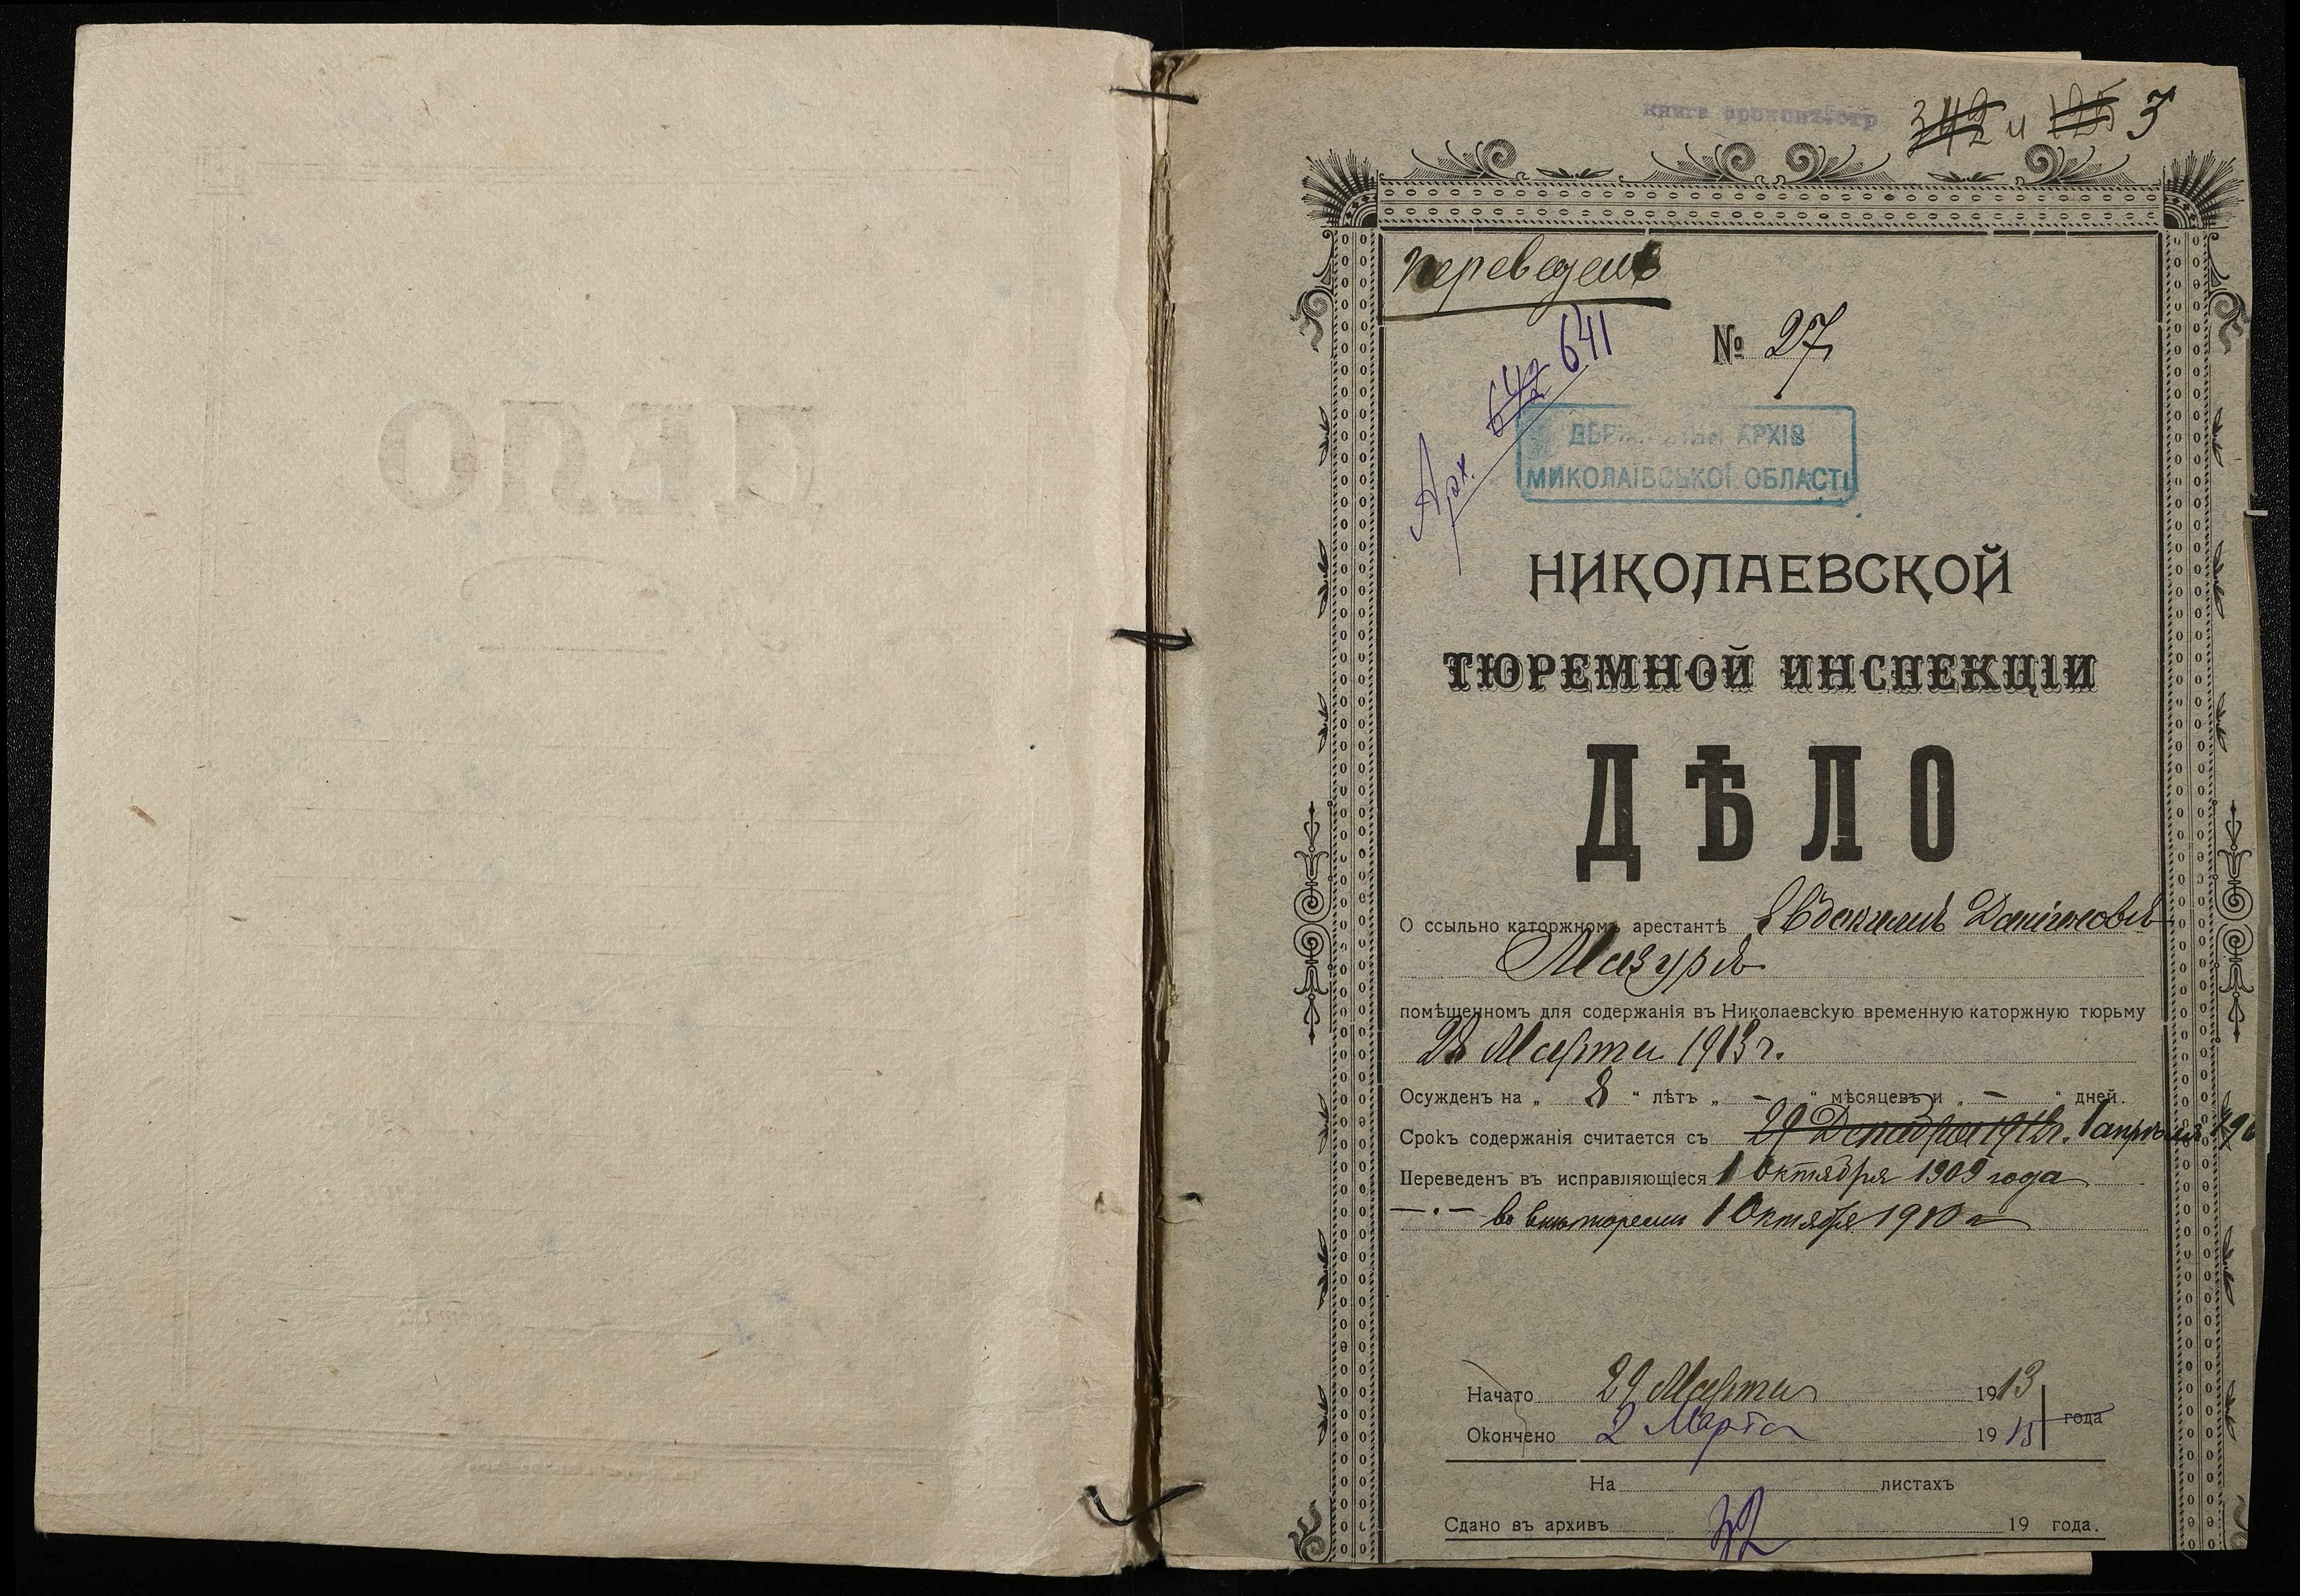 книга просмотр
342 и 125 3
переведенъ
№ 27
Арх. 642 641
ДЕРЖАВНИЙ АРХІВ
МИКОЛАЇВСЬКОЇ ОБЛАСТІ
НИКОЛАЕВСКОЙ
ТЮРЕМНОЙ ИНСПЕКЦІИ
ДѢЛО
О ссыльно каторжномъ арестантѣ Евдокимѣ Даніиловѣ
Мазурѣ
помѣщенномъ для содержанія въ Николаевскую временную каторжную тюрьму
28 Марта 1913 г.
Осужденъ на „ 8 “ лѣтъ „ – “ мѣсяцевъ и „ – “ дней.
Срокъ содержанія считается съ 29 Декабря 1912 г. 1 апрѣля 190
Переведенъ въ исправляющіеся 1 Октября 1909 года
—·— во внѣтюремн 1 Октября 1910 г
Начато 29 Марта 1913
Окончено 2 Марта 1915 года
На листахъ
Сдано въ архивъ 32 19 года.